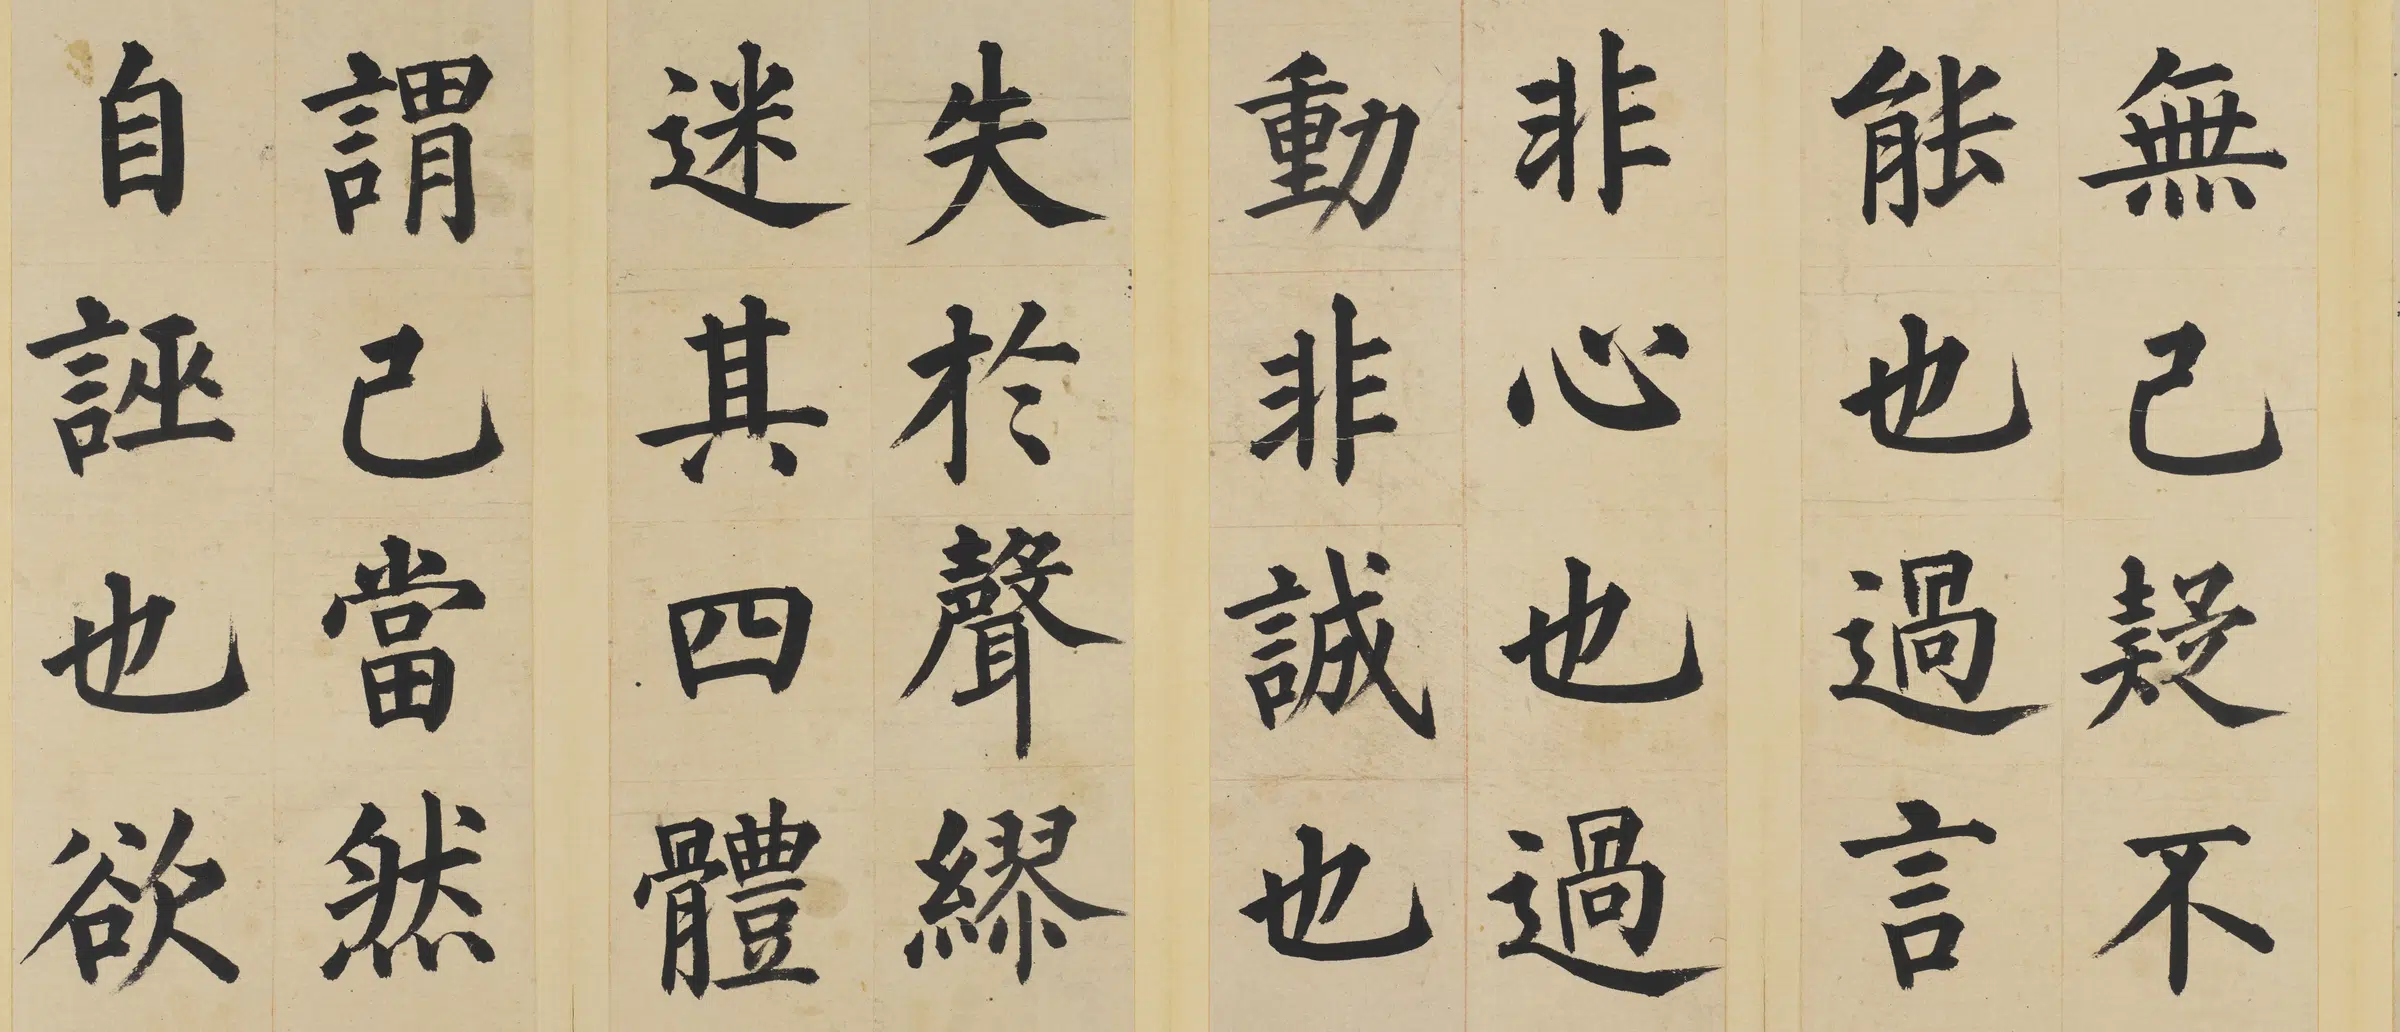 無己疑不
能也過言
非心也過
動非誠也
失於聲繆
迷其四體
謂己當然
自誣也欲